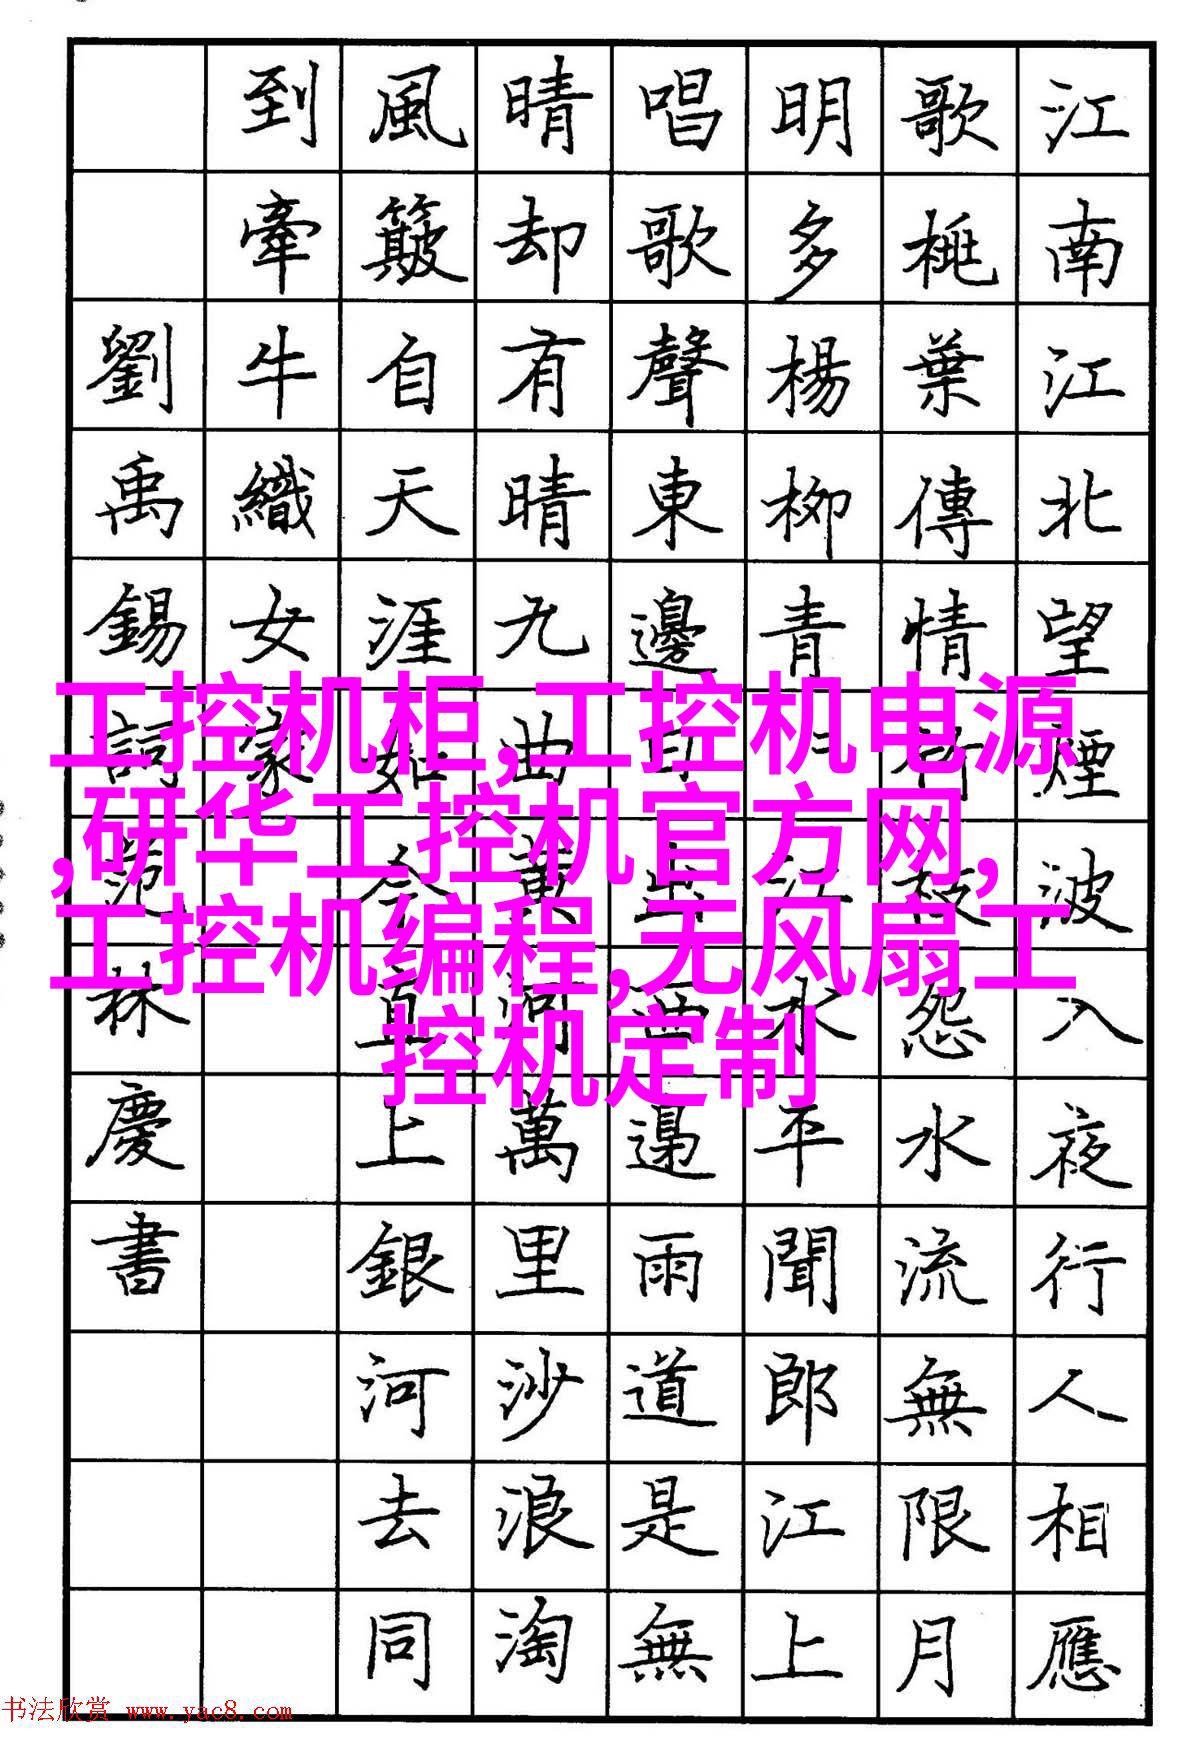 江南江北望煙波入夜行人相應
歌桃葉傳情竹枝怨水流無限月
明多楊柳青青江水平聞郎江上
唱歌聲東邊日出西邊雨道是無
晴却有晴九曲黃河萬里沙浪淘
風簸自天涯如今直上銀河去同
到牽牛織女家
劉禹錫詞林慶書
工控机柜,工控机电源
,研华工控机官方网,
工控机编程,无风扇工
控机定制
书法欣赏 www.yac8.com